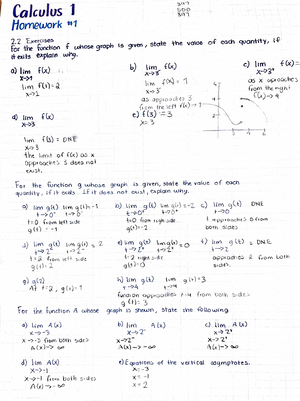 Calculus 1
Homework #1
2.2 Exercises
For the function f whose graph is given, state the value of each quantity, if
it exists explain why.
a) lim f(x)
x→1
lim f(x) = 2
x→1
b) lim f(x)
x→3⁻
lim f(x) = 1
x→3⁻
as x approaches 3
from the left f(x) → 1
c) lim f(x) =
x→3⁺
as x approaches
from the right
f(x) → 4
d) lim f(x)
x→3
lim f(3) = DNE
x→3
the limit of f(x) as x
approaches 3 does not
exist.
e) f(3) = 3
x = 3
For the function g whose graph is given, state the value of each
quantity, if it exists. If it does not exist, explain why.
a) lim g(t) lim g(t) = -1
t→0⁻ t→0⁻
t=0 from left side
g(t) = -1
b) lim g(t) lim g(t) = -2
t→0⁺ t→0⁺
t=0 from right side
g(t) = -2
c) lim g(t) DNE
t→0
t approaches 0 from
both sides
d) lim g(t) lim g(t) = 2
t→2⁻ t→2⁻
t=2 from left side
g(t) = 2
e) lim g(t) lim g(t) = 0
t→2⁺ t→2⁺
t=2 right side
g(t) = 0
f) lim g(t) DNE
t→2
approaches 2 from both
sides
g) g(2)
At t=2, g(t) = 1
h) lim g(t) lim g(t) = 3
t→4 t→4
function approaches t=4 from both sides
g(t) = 3
For the function A whose graph is shown, state the following
a) lim A(x)
x→-3
x→-3 from both sides
A(x) → ∞
b) lim A(x)
x→2⁻
x→2⁻
A(x) → -∞
c) lim A(x)
x→2⁺
x→2⁺
A(x) → ∞
d) lim A(x)
x→-1
x→-1 from both sides
A(x) → -∞
e) Equations of the vertical asymptotes.
x = -3
x = -1
x = 2